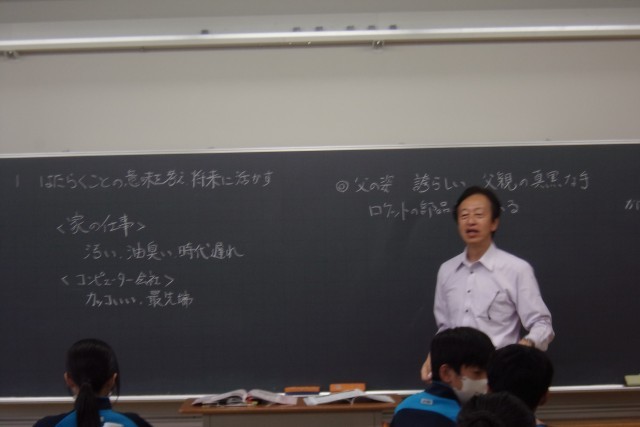 1 はたらくことの意味を考え 将来に活かす
<家の仕事>
汚い、油臭い、時代遅れ
<コンピューター会社>
カッコいい、最先端
◎ 父の姿 誇らしい 父親の真黒な手
ロケットの部品 る
が